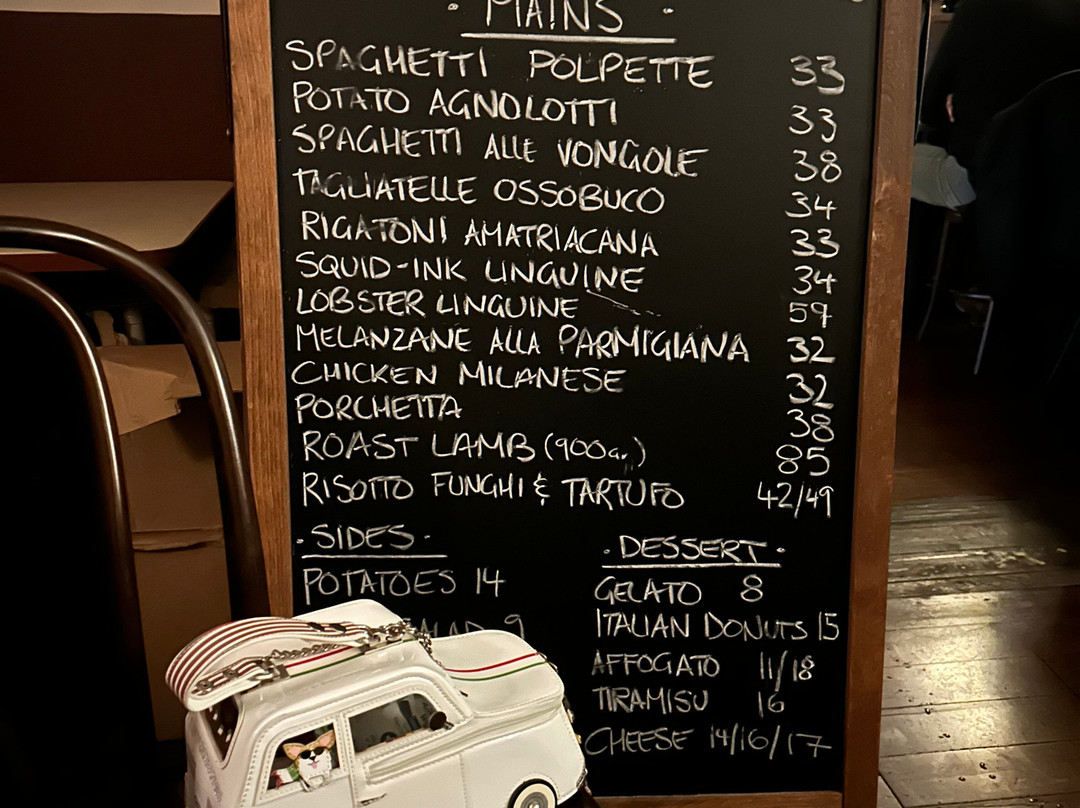 · MAINS ·
SPAGHETTI POLPETTE 33
POTATO AGNOLOTTI 33
SPAGHETTI ALLE VONGOLE 38
TAGLIATELLE OSSOBUCO 34
RIGATONI AMATRIACANA 33
SQUID-INK LINGUINE 34
LOBSTER LINGUINE 59
MELANZANE ALLA PARMIGIANA 32
CHICKEN MILANESE 32
PORCHETTA 38
ROAST LAMB (900Gr.) 85
RISOTTO FUNGHI & TARTUFO 42/49
· SIDES ·
POTATOES 14
9
· DESSERT ·
GELATO 8
ITALIAN DONUTS 15
AFFOGATO 11/18
TIRAMISU 16
CHEESE 14/16/17